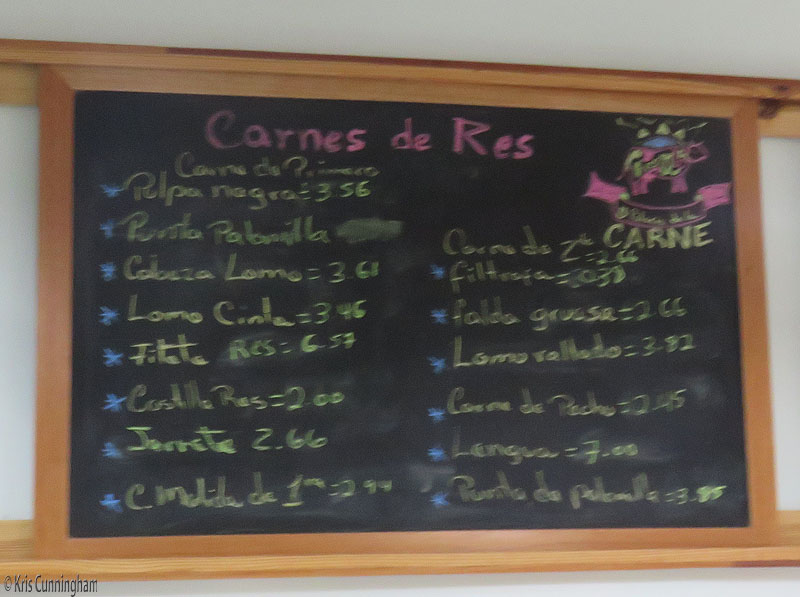 Carnes de Res
Carne de Primera
* Pulpa negra = 3.56
* Punta Palomilla
* Cabeza Lomo = 3.61
* Lomo Cinta = 3.46
* Filete RES = 6.57
* Costilla Res = 2.00
* Jarrete 2.66
* C Molida de 1ra = 2.94
CARNE
Carne de 2da = 2.66
* falda gruesa = 2.66
* Lomo rallado = 3.82
* Carne de Pecho = 2.45
* Lengua = 7.00
* Punta de palomilla = 3.85
© Kris Cunningham